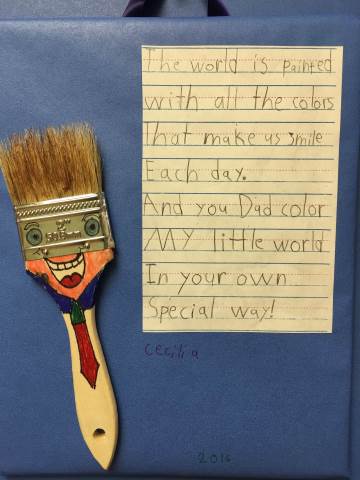 The world is painted
with all the colors
That make us smile
Each day.
And you Dad color
MY little world
In your own
Special way!
cecilia
2016